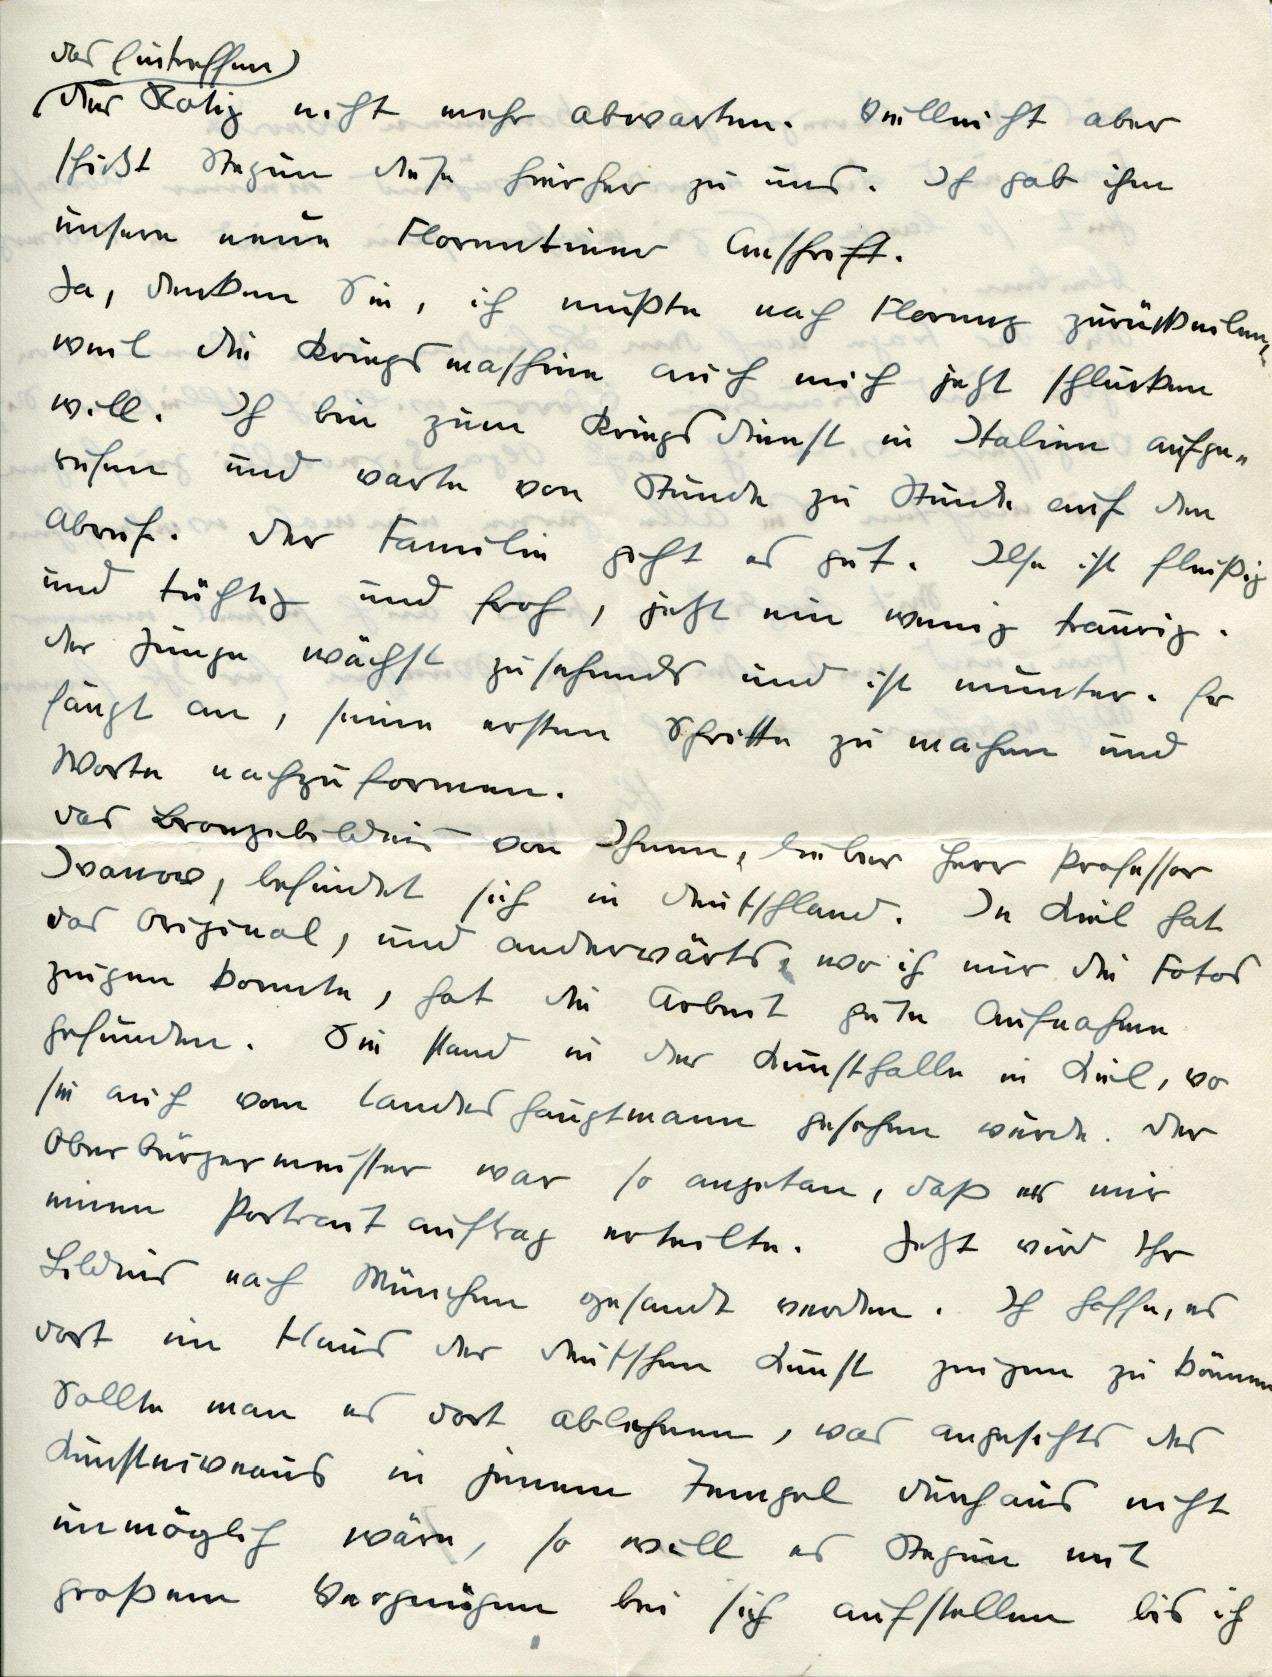 das Eintreffen
der Notiz nicht mehr abwarten. Vielleicht aber
schickt Stegun diese hierher zu uns. Ich gab ihm
unsere neue Florentiner Anschrift.
Ja, denken Sie, ich mußte nach Florenz zurückeilen,
weil die Kriegsmaschine auch mich jetzt schlucken
will. Ich bin zum Kriegsdienst in Italien aufge-
rufen und warte von Stunde zu Stunde auf den
Abruf. Der Familie geht es gut. Ilse ist fleißig
und tüchtig und froh, jetzt ein wenig traurig.
Der Junge wächst zusehends und ist munter. Er
fängt an, seine ersten Schritte zu machen und
Worte nachzuformen.
Das Bronzebildnis von Ihnen, lieber Herr Professor
Ivanow, befindet sich in Deutschland. In Kiel hat
das Original, und anderwärts, wo ich nur die Fotos
zeigen konnte, hat die Arbeit gute Aufnahme
gefunden. Sie stand in der Kunsthalle in Kiel, wo
sie auch vom Landeshauptmann gesehen wurde. Der
Oberbürgermeister war so angetan, daß er mir
einen Portraitauftrag erteilte. Jetzt wird Ihr
Bildnis nach München gesandt werden. Ich hoffe, es
dort im Haus der deutschen Kunst zeigen zu können
Sollte man es dort ablehnen, was angesichts des
Kunstniveaus in jenem Tempel durchaus nicht
unmöglich wäre, so will es Stegun mit
großem Vergnügen bei sich aufstellen bis ich